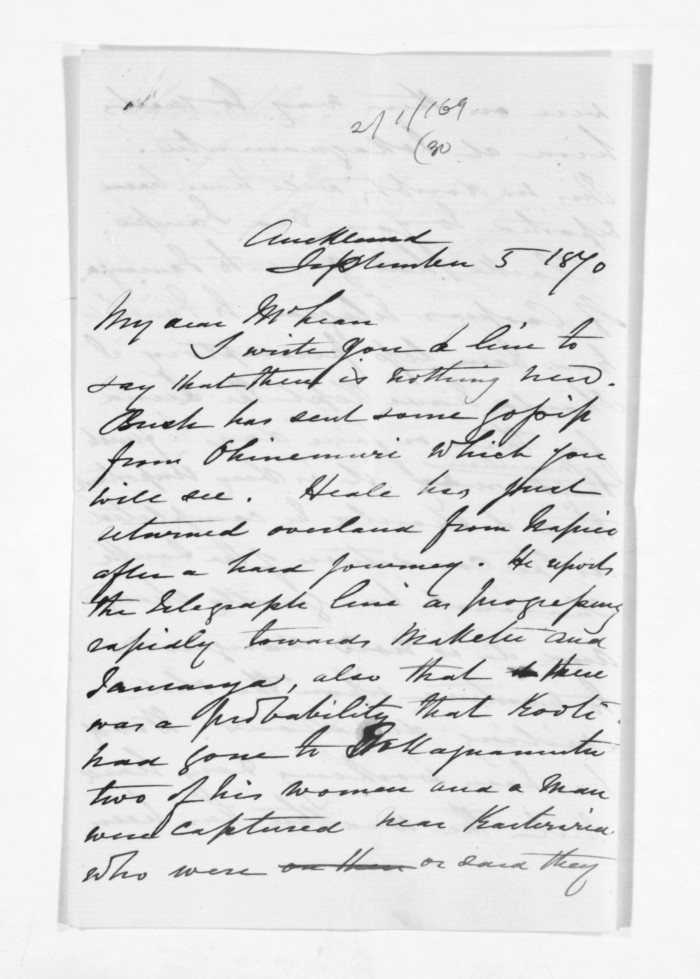 2/1/169
(30
Auckland
September 5 1870
My dear McLean
I write you a line to
say that there is nothing new.
Bush has sent some gossip
from Ohinemuri which you
will see. Heale has just
returned overland from Napier
after a hard journey. He reports
the Telegraph line as progressing
rapidly towards Maketu and
Tauranga, also that there
was a probability that Kooti
had gone to
two of his women and a man
were captured near
who were on their or said they